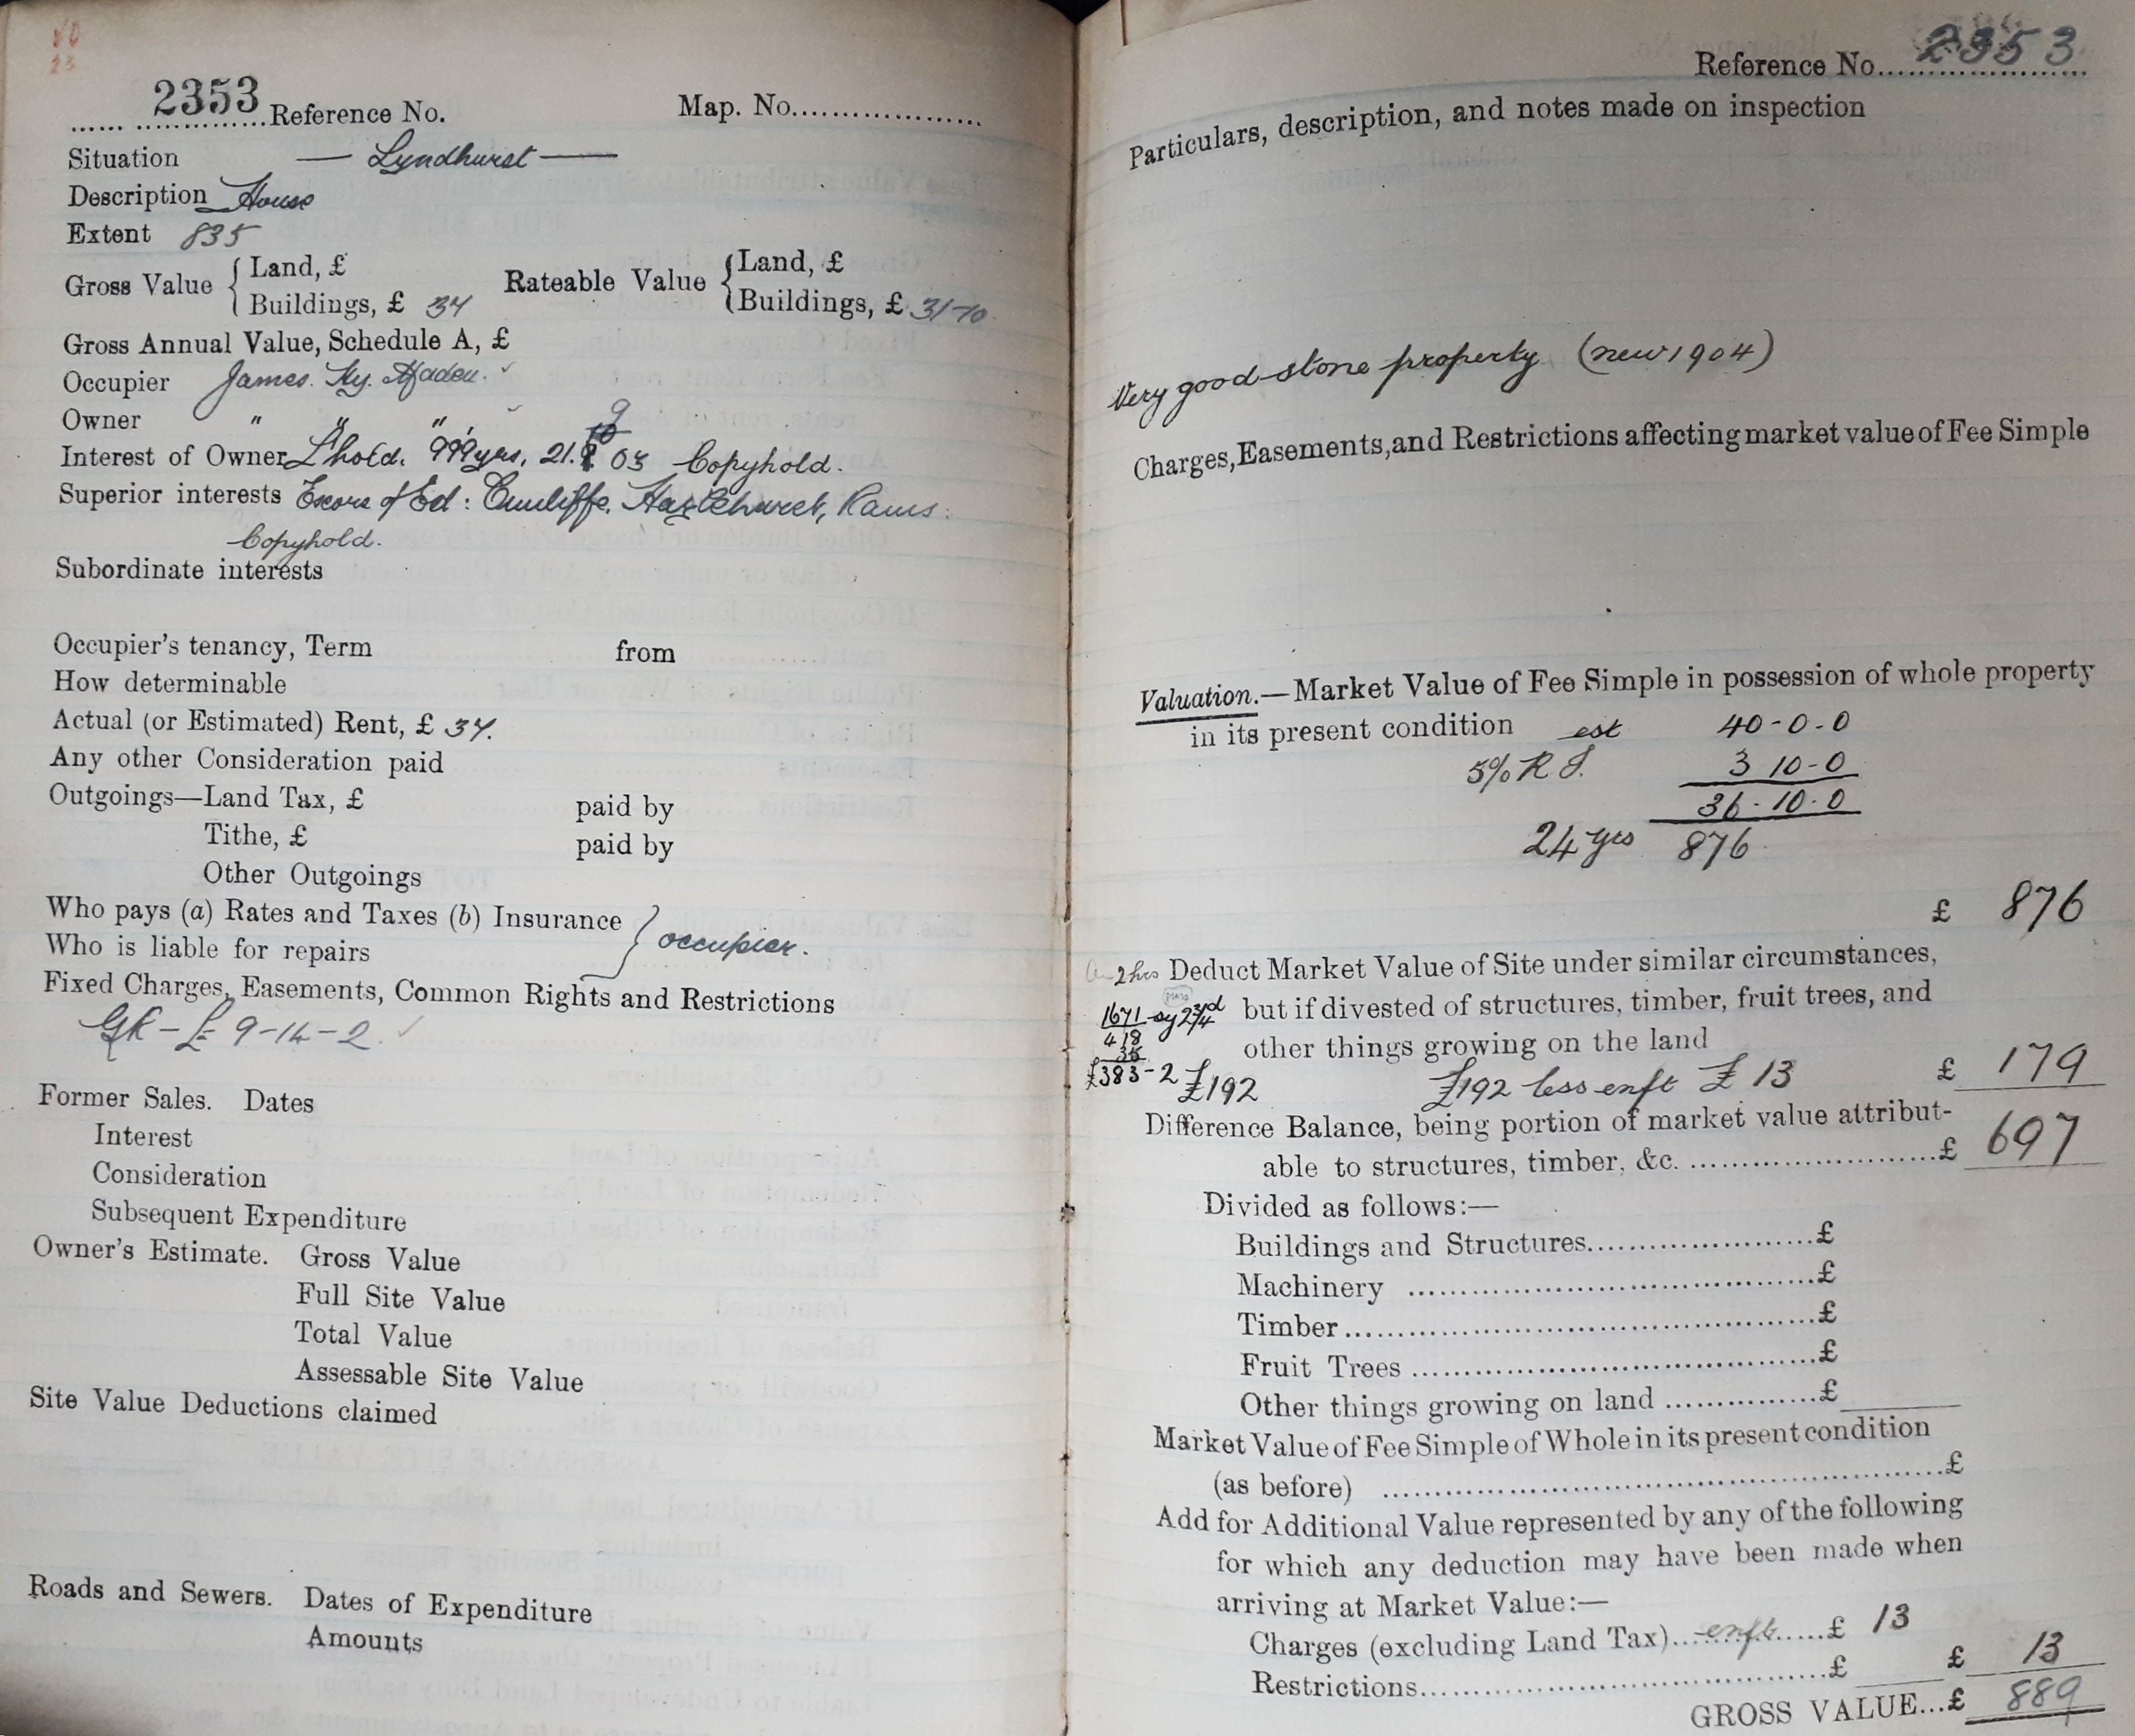 2353 Reference No. Map. No.
Situation — Lyndhurst —
Description House
Extent 835
Gross Value { Land, £
Buildings, £ 34
Rateable Value { Land, £
Buildings, £ 31-10
Gross Annual Value, Schedule A, £
Occupier James. Hy. Maden.
Owner " " "
Interest of Owner L'hold. 999 yrs, 21. 9 03 Copyhold.
Superior interests Exors of Ed: Cunliffe, Hazlehurst, Raws:
Copyhold.
Subordinate interests
Occupier's tenancy, Term from
How determinable
Actual (or Estimated) Rent, £ 34.
Any other Consideration paid
Outgoings—Land Tax, £ paid by
Tithe, £ paid by
Other Outgoings
Who pays (a) Rates and Taxes (b) Insurance
Who is liable for repairs } occupier.
Fixed Charges, Easements, Common Rights and Restrictions
GR - £ 9-14-2. ✓
Former Sales. Dates
Interest
Consideration
Subsequent Expenditure
Owner's Estimate. Gross Value
Full Site Value
Total Value
Assessable Site Value
Site Value Deductions claimed
Roads and Sewers. Dates of Expenditure
Amounts
Reference No. 2353
Particulars, description, and notes made on inspection
Very good stone property (new 1904)
Charges, Easements, and Restrictions affecting market value of Fee Simple
Valuation.—Market Value of Fee Simple in possession of whole property
in its present condition est 40-0-0
5% R 3 10-0
36-10-0
24 yrs 876
£ 876
Deduct Market Value of Site under similar circumstances,
1671 sy 2¾d but if divested of structures, timber, fruit trees, and
418
35 other things growing on the land
£383-2 £192 £192 less enft £13 £ 179
Difference Balance, being portion of market value attribut-
able to structures, timber, &c. £ 697
Divided as follows:—
Buildings and Structures £
Machinery £
Timber £
Fruit Trees £
Other things growing on land £
Market Value of Fee Simple of Whole in its present condition
(as before) £
Add for Additional Value represented by any of the following
for which any deduction may have been made when
arriving at Market Value:—
Charges (excluding Land Tax) enft £ 13
Restrictions £ £ 13
GROSS VALUE...£ 889